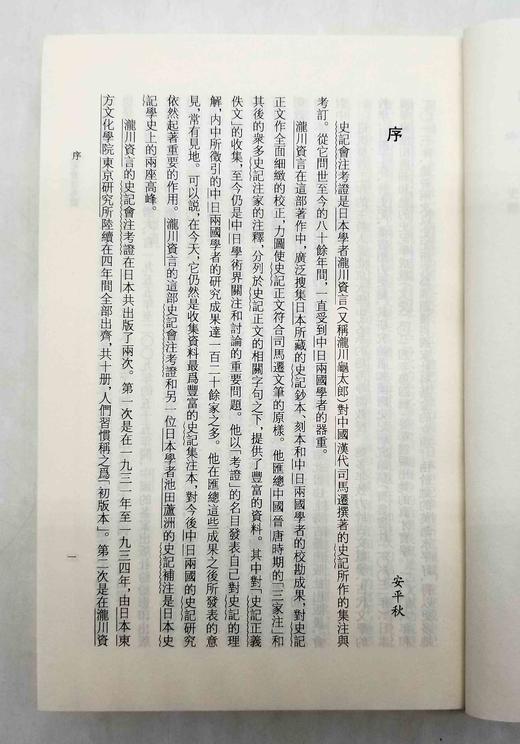 序
安平秋
史記會注考證是日本學者瀧川資言（又稱瀧川龜太郎）對中國漢代司馬遷撰著的史記所作的集注與
考訂。從它問世至今的八十餘年間，一直受到中日兩國學者的器重。
瀧川資言在這部著作中，廣泛搜集日本所藏的史記鈔本、刻本和中日兩國學者的校勘成果，對史記
正文作全面細緻的校正，力圖使史記正文符合司馬遷文筆的原樣。他匯總中國晉唐時期的「三家注」和
其後的衆多史記注家的注釋，分列於史記正文的相關字句之下，提供了豐富的資料。其中對「史記正義
佚文」的收集，至今仍是中日學術界關注和討論的重要問題。他以「考證」的名目發表自己對史記的理
解，内中所徵引的中日兩國學者的研究成果達一百二十餘家之多。他在匯總這些成果之後所發表的意
見，常有見地。可以説，在今天，它仍然是收集資料最爲豐富的史記集注本，對今後中日兩國的史記研究
依然起著重要的作用。瀧川資言的這部史記會注考證和另一位日本學者池田蘆洲的史記補注是日本史
記學史上的兩座高峰。
瀧川資言的史記會注考證在日本共出版了兩次。第一次是在一九三二年至一九三四年，由日本東
方文化學院東京研究所陸續在四年間全部出齊，共十册，人們習慣稱之爲「初版本」。第二次是在瀧川資
序
一